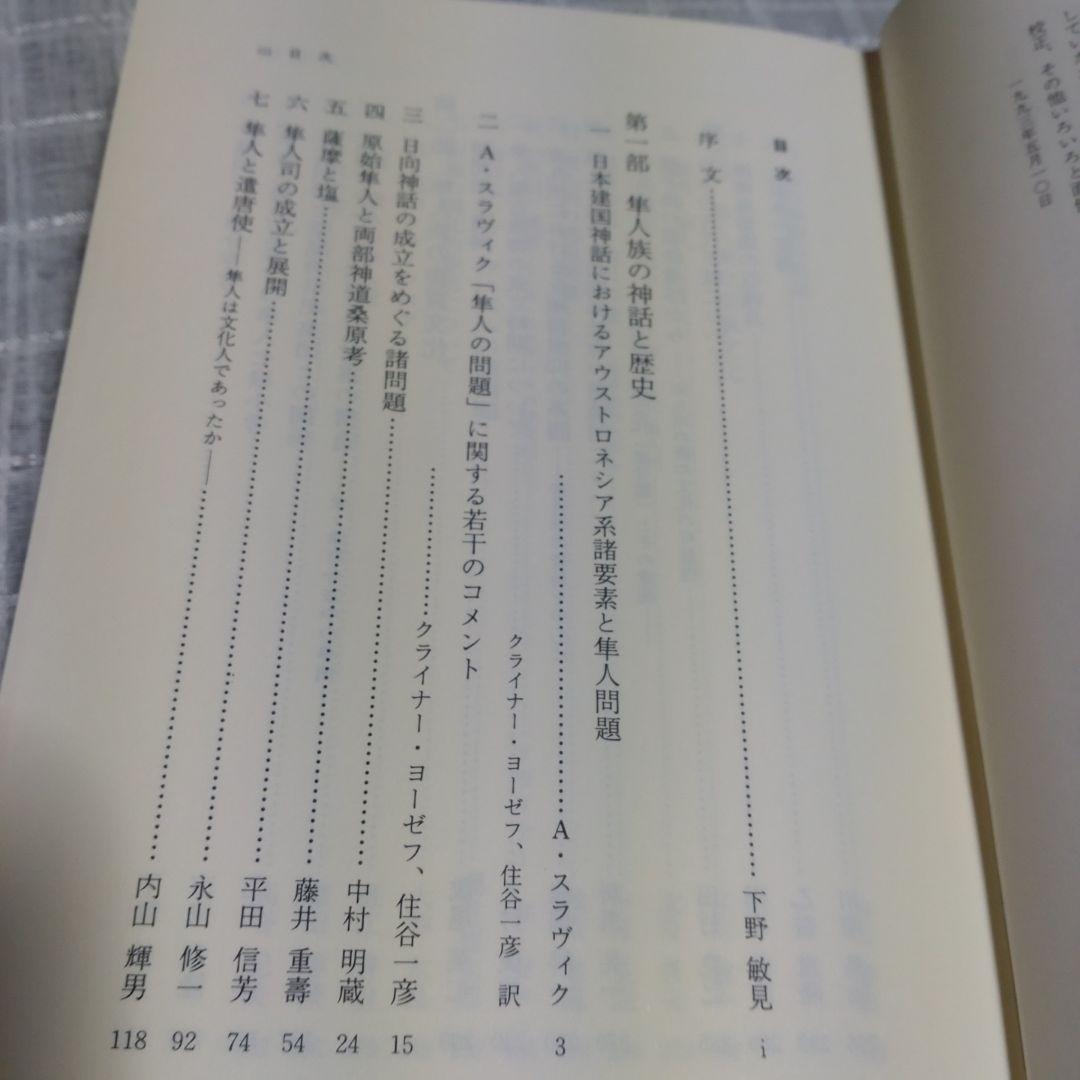 していた
校正、その他いろいろと面倒
一九九三年五月一〇日
目次
序文………下野 敏見 i
第一部 隼人族の神話と歴史
一 日本建国神話におけるアウストロネシア系諸要素と隼人問題
………A・スラヴィク 3
クライナー・ヨーゼフ、住谷一彦 訳
二 A・スラヴィク「隼人の問題」に関する若干のコメント
………クライナー・ヨーゼフ、住谷一彦 15
三 日向神話の成立をめぐる諸問題………中村 明蔵 24
四 原始隼人と両部神道桑原考………藤井 重壽 54
五 薩摩と塩………平田 信芳 74
六 隼人司の成立と展開………永山 修一 92
七 隼人と遣唐使――隼人は文化人であったか――………内山 輝男 118
目次